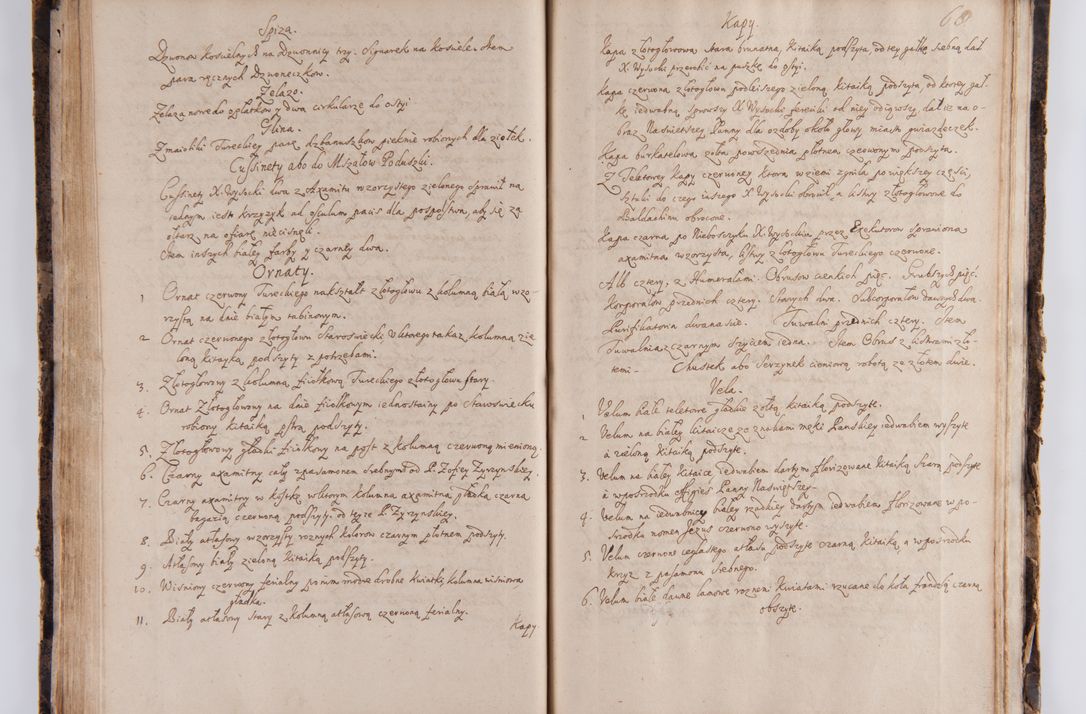 Spiza.
Dzwonow koscielnych na dzwonnicy trzy. Sygnarek na kosciele. Item
para ręcznych Dzwoneczkow.
Zelazo.
Zelaza nowe do opłatkow y dwa cirkularze do ostyi
Glina.
Zmaiolliki Tureckiey parę dzbanuszkow pieknie robionych dla ziołek.
Cussinety abo do Mszałow Poduszki.
Cussinety X. Wysocki dwa z Axamitu wzorzystego zielonego sprawił na
iednym iest krzyzyk ad osculum pacis dla pospolstwa, aby się zą
ołtarz na ofiarę nie cisnęli.
Item inszych białey farby y czarney dwa.
Ornaty.
1 Ornat czerwony Tureckiego nakształt złotogłowu z kolumną białą wzo-
rzystą na dnie białym tabinowym.
2 Ornat czerwonego złotogłowu Staroswiecki kolumna zie
loną kitayką podszyty z potrzebami.
3. Złotogłowowy z kolumną fiiołkową Tureckiego złotogłowu stary.
4. Ornat Złotogłowowy na dnie fiiołkowym iednostainy po Staroswiecku
robiony kitaiką pstrą podszyty.
5. Złotogłowowy gładki fiiołkowy na post z kolumną czerwoną mienioną
6. Czarny axamitny cały z pasamonem srebnym od P. Zofiey Zyrzynskiey.
7. Czarny axamitny w kostkę wolitorn kolumna axamitna gładka czarna
bagazią czerwoną podszyty. od teyze P. Zyrzynskiey.
8. Biały atłasowy wzorzysty roznych kolorow czarnym płotnem podszyty.
9. Atłasowy biały zieloną kitaiką podszyty.
10. Wisniowy czerwony ferialny modre drobne kwiatki, kolumna wisniowa
gładka.
11. Biały atłasowy stary z kolumną atłasową czerwoną ferialny.
Kapy
68
Kapy.
Kapa złotogłowowa stara brunatna, kitaiką podszyta, od tey gałkę srebną dał
X. Wysocki przerobić na puszkę do ostyi.
Kapa czerwona złotogłowu podleiszego zieloną kitaiką podszyta, od ktorey gał-
kę iedwabną sprawiwszy X Wysocki feretki od niey odiąwszy dał ie na o-
braz Naświętszey Panny dla ozdoby około głowy miasto gwiazdeczek.
Kapa burkatelowa zołta powszednia płotnem czerwonym podszyta.
Z Tektorey kapy czerwoney ktora w ziemi zgniła po większey części,
sztuki do czego inszego X Wysocki obrocił, a listwy złotogłowowe do
Baldachimu obrocone.
Kapa czarna po Nieboszczyku X. Wysockim przez Exekutorow sprawiona
axamitna wzorzysta, listwy złotogłowu Tureckiego czerwone.
Alb cztery, z Humerałami. Obrusow cienkich pięć. Grubszych pięć.
Korporałow przednich cztery. Starych dwa. Subcorporałow dawnych dwa.
Purifikatorza dwanascie. Tuwalni przednich cztery. Item
Tuwalnia z czarnym szyciem iedna. Item Obrus z listwami zło-
temi - Chustek abo Serzynek cieniową robotą ze złotem dwie.
Vela.
1 Velum białe teletowe gładkie zołtą kitaiką podszyte.
2 Velum na białey kitaicze ze znakami męki Panskiey iedwabiem wyszyte
a zieloną kitaiką podszyte.
3. Velum na białey kitaice iedwabiem dartym florizowane kitaiką szarą podszyte
a w posrodku effigies Panny Naswiętszey.
4. Velum na iedwabnicy białey rzadkiey dartym iedwabiem florizowane w po-
srodku nomen Jezus czerwono wyszyte.
5. Velum czerwono ceglastego atłasu podszyte czarną kitaiką a w posrodku
krzyz z pasamonu srebnego.
6. Velum białe dawne lamowe roznemi kwiatami rzucane do koła frandzlą czarną
obszyte.